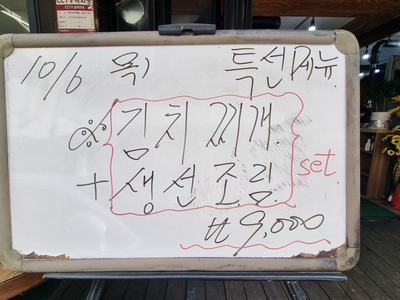 10/6 목) 특선메뉴.
김치찌개.
+ 생선조림 set.
₩9,000